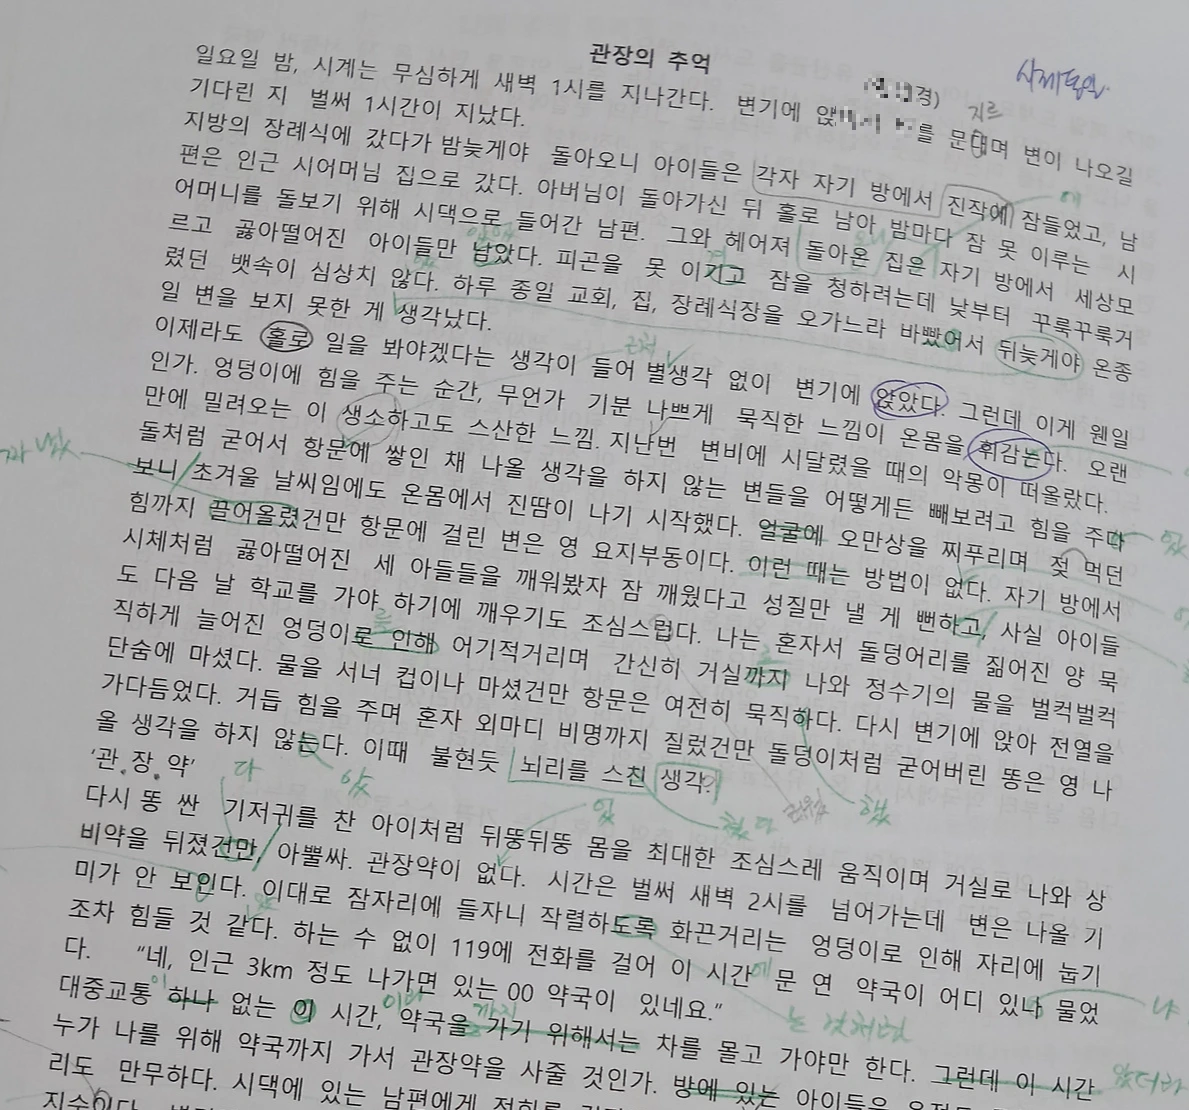 관장의 추억
사제동인
경)
일요일 밤, 시계는 무심하게 새벽 1시를 지나간다. 변기에 앉 를 문대며 변이 나오길
지르
기다린 지 벌써 1시간이 지났다.
지방의 장례식에 갔다가 밤늦게야 돌아오니 아이들은 각자 자기 방에서 진작에 잠들었고, 남
에
편은 인근 시어머님 집으로 갔다. 아버님이 돌아가신 뒤 홀로 남아 밤마다 잠 못 이루는 시
어머니를 돌보기 위해 시댁으로 들어간 남편. 그와 헤어져 돌아온 집은 자기 방에서 세상모
르고 곯아떨어진 아이들만 남았다. 피곤을 못 이기고 잠을 청하려는데 낮부터 꾸룩꾸룩거
렸던 뱃속이 심상치 않다. 하루 종일 교회, 집, 장례식장을 오가느라 바빴어서 뒤늦게야 온종
일 변을 보지 못한 게 생각났다.
이제라도 홀로 일을 봐야겠다는 생각이 들어 별생각 없이 변기에 앉았다. 그런데 이게 웬일
인가. 엉덩이에 힘을 주는 순간, 무언가 기분 나쁘게 묵직한 느낌이 온몸을 휘감는다. 오랜
만에 밀려오는 이 생소하고도 스산한 느낌. 지난번 변비에 시달렸을 때의 악몽이 떠올랐다.
돌처럼 굳어서 항문에 쌓인 채 나올 생각을 하지 않는 변들을 어떻게든 빼보려고 힘을 주다
보니 초겨울 날씨임에도 온몸에서 진땀이 나기 시작했다. 얼굴에 오만상을 찌푸리며 젖 먹던
힘까지 끌어올렸건만 항문에 걸린 변은 영 요지부동이다. 이런 때는 방법이 없다. 자기 방에서
시체처럼 곯아떨어진 세 아들들을 깨워봤자 잠 깨웠다고 성질만 낼 게 뻔하고, 사실 아이들
도 다음 날 학교를 가야 하기에 깨우기도 조심스럽다. 나는 혼자서 돌덩어리를 짊어진 양 묵
를
직하게 늘어진 엉덩이로 인해 어기적거리며 간신히 거실까지 나와 정수기의 물을 벌컥벌컥
로
단숨에 마셨다. 물을 서너 컵이나 마셨건만 항문은 여전히 묵직하다. 다시 변기에 앉아 전열을
가다듬었다. 거듭 힘을 주며 혼자 외마디 비명까지 질렀건만 돌덩이처럼 굳어버린 똥은 영 나
올 생각을 하지 않는다. 이때 불현듯 뇌리를 스친 생각.
다
았
었
쳤다
했
‘관.장.약’
다시 똥 싼 기저귀를 찬 아이처럼 뒤뚱뒤뚱 몸을 최대한 조심스레 움직이며 거실로 나와 상
비약을 뒤졌건만, 아뿔싸. 관장약이 없다. 시간은 벌써 새벽 2시를 넘어가는데 변은 나올 기
미가 안 보인다. 이대로 잠자리에 들자니 작렬하도록 화끈거리는 엉덩이로 인해 자리에 눕기
조차 힘들 것 같다. 하는 수 없이 119에 전화를 걸어 이 시간 문 연 약국이 어디 있냐 물었
에
다. “네, 인근 3km 정도 나가면 있는 00 약국이 있네요.”
는 것처럼
냐
대중교통 하나 없는 이 시간, 약국을 가기 위해서는 차를 몰고 가야만 한다. 그런데 이 시간
이
까지
누가 나를 위해 약국까지 가서 관장약을 사줄 것인가. 방에 있는 아이들은
리도 만무하다. 시댁에 있는 남편에게 전화를